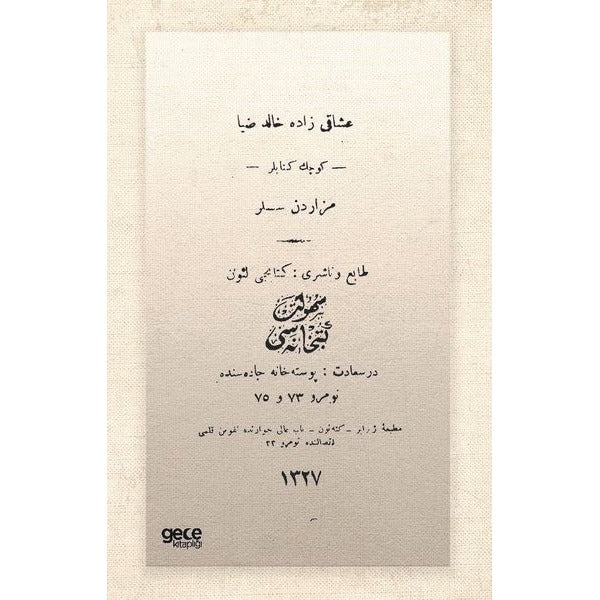 عشاقی زاده خالد ضیا
— كوچك كتابلر —
مزاردن سسلر
طابع و ناشری : كتابجی لئون
سهولت
كتبخانه‌سی
درسعادت : پوسته‌خانه جاده‌سنده
نومرو ۷۳ و ۷۵
مطبعۀ ژیرایر - كته‌ئون - باب عالی جوارنده نفوس قلمی
اتصالنده نومرو ۲۲
۱۳۲۷
gece
kitaplığı